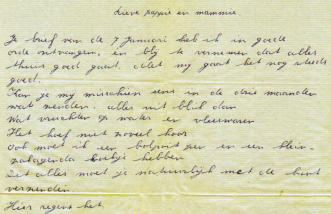 Lieve pappie en mammie
Je brief van de 7 januari heb ik in goede
orde ontvangen, en blij te vernemen dat alles
thuis goed gaat. Met my gaat het nog steeds
goed.
Kan je my misschien eens in de drie maanden
wat zenden. alles uit blik dan
Wat vruchten op water en vleeswaren
Het hoef niet zoveel hoor
Ook moet ik een balpoint pen en een klein
zakagenda boekje hebben
Dit alles moet je natuurlijk met de boot
verzenden
Hier regens het